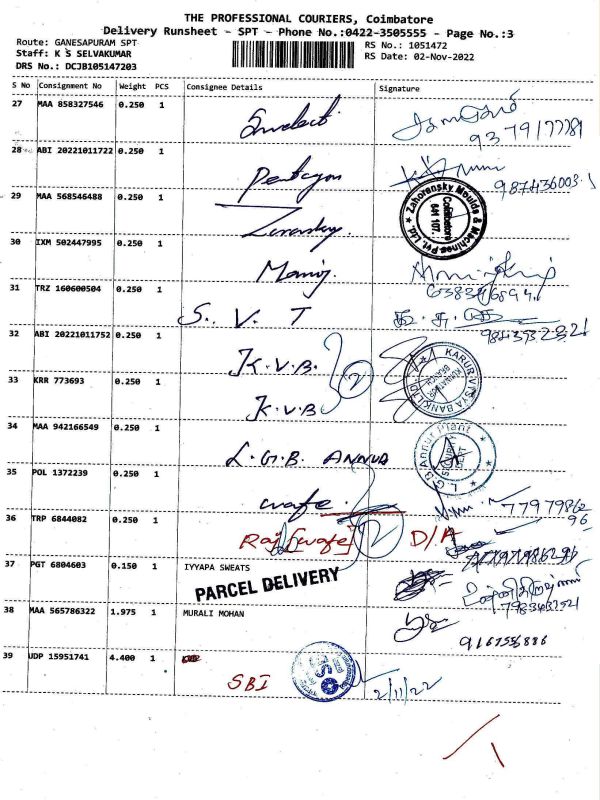 THE PROFESSIONAL COURIERS, Coimbatore
Delivery Runsheet - SPT - Phone No.:0422-3505555 - Page No.:3
Route: GANESAPURAM SPT
Staff: K S SELVAKUMAR
DRS No.: DCJB105147203
RS No.: 1051472
RS Date: 02-Nov-2022
S No Consignment No Weight PCS Consignee Details Signature
27 MAA 858327546 0.250 1
28 ABI 20221011722 0.250 1 Pentagon
29 MAA 568546488 0.250 1
Zahoransky Moulds & Machines Pvt. Ltd.
Coimbatore
641 107.
30 IXM 502447995 0.250 1 Manoj.
31 TRZ 160600504 0.250 1 S. V. T
32 ABI 20221011752 0.250 1 K.V.B. 2
KARUR VYSYA BANK LTD
BRANCH
33 KRR 773693 0.250 1 K.V.B
34 MAA 942166549 0.250 1 L.G.B. ANNUR
L.G.B Annur Plant
SECURITY
35 POL 1372239 0.250 1 wafe.
7797986296
36 TRP 6844082 0.250 1 Raj [wafe] 2 D/A
7797986296
37 PGT 6804603 0.150 1 IYYAPA SWEATS
PARCEL DELIVERY
38 MAA 565786322 1.975 1 MURALI MOHAN
9167556886
39 UDP 15951741 4.400 1
SBI 2/11/22